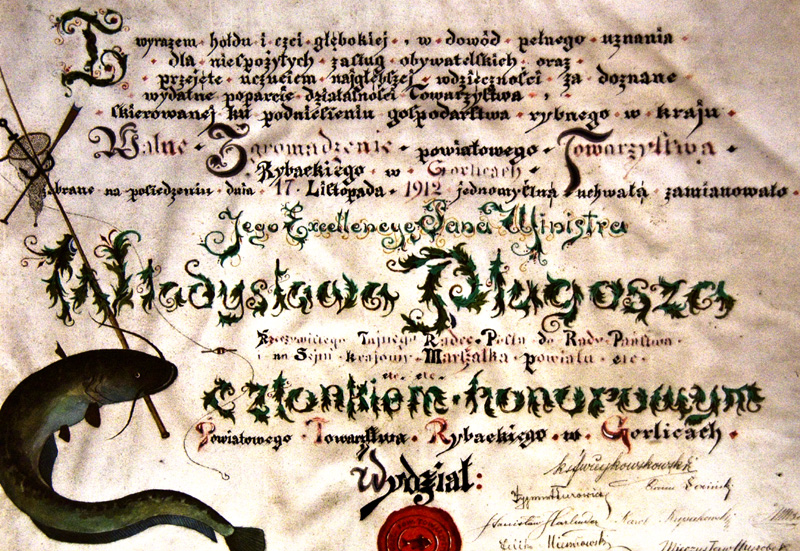 Z wyrazem hołdu i czci głębokiej, w dowód pełnego uznania
dla niespożytych zasług obywatelskich oraz
przejęte uczuciem najgłębszej wdzięczności za doznane
wydatne poparcie działalności Towarzystwa,
skierowanej ku podniesieniu gospodarstwa rybnego w kraju
Walne Zgromadzenie powiatowego Towarzystwa
Rybackiego w Gorlicach
zebrane na posiedzeniu dnia 17. Listopada 1912 jednomyślną uchwałą zamianowało
Jego Excellencyę Pana Ministra
Władysława Długosza
Rzeczywistego Tajnego Radcę Posła do Rady Państwa
i na Sejm krajowy Marszałka powiatu etc.
etc. etc.
członkiem honorowym
Powiatowego Towarzystwa Rybackiego w Gorlicach
Wydział: